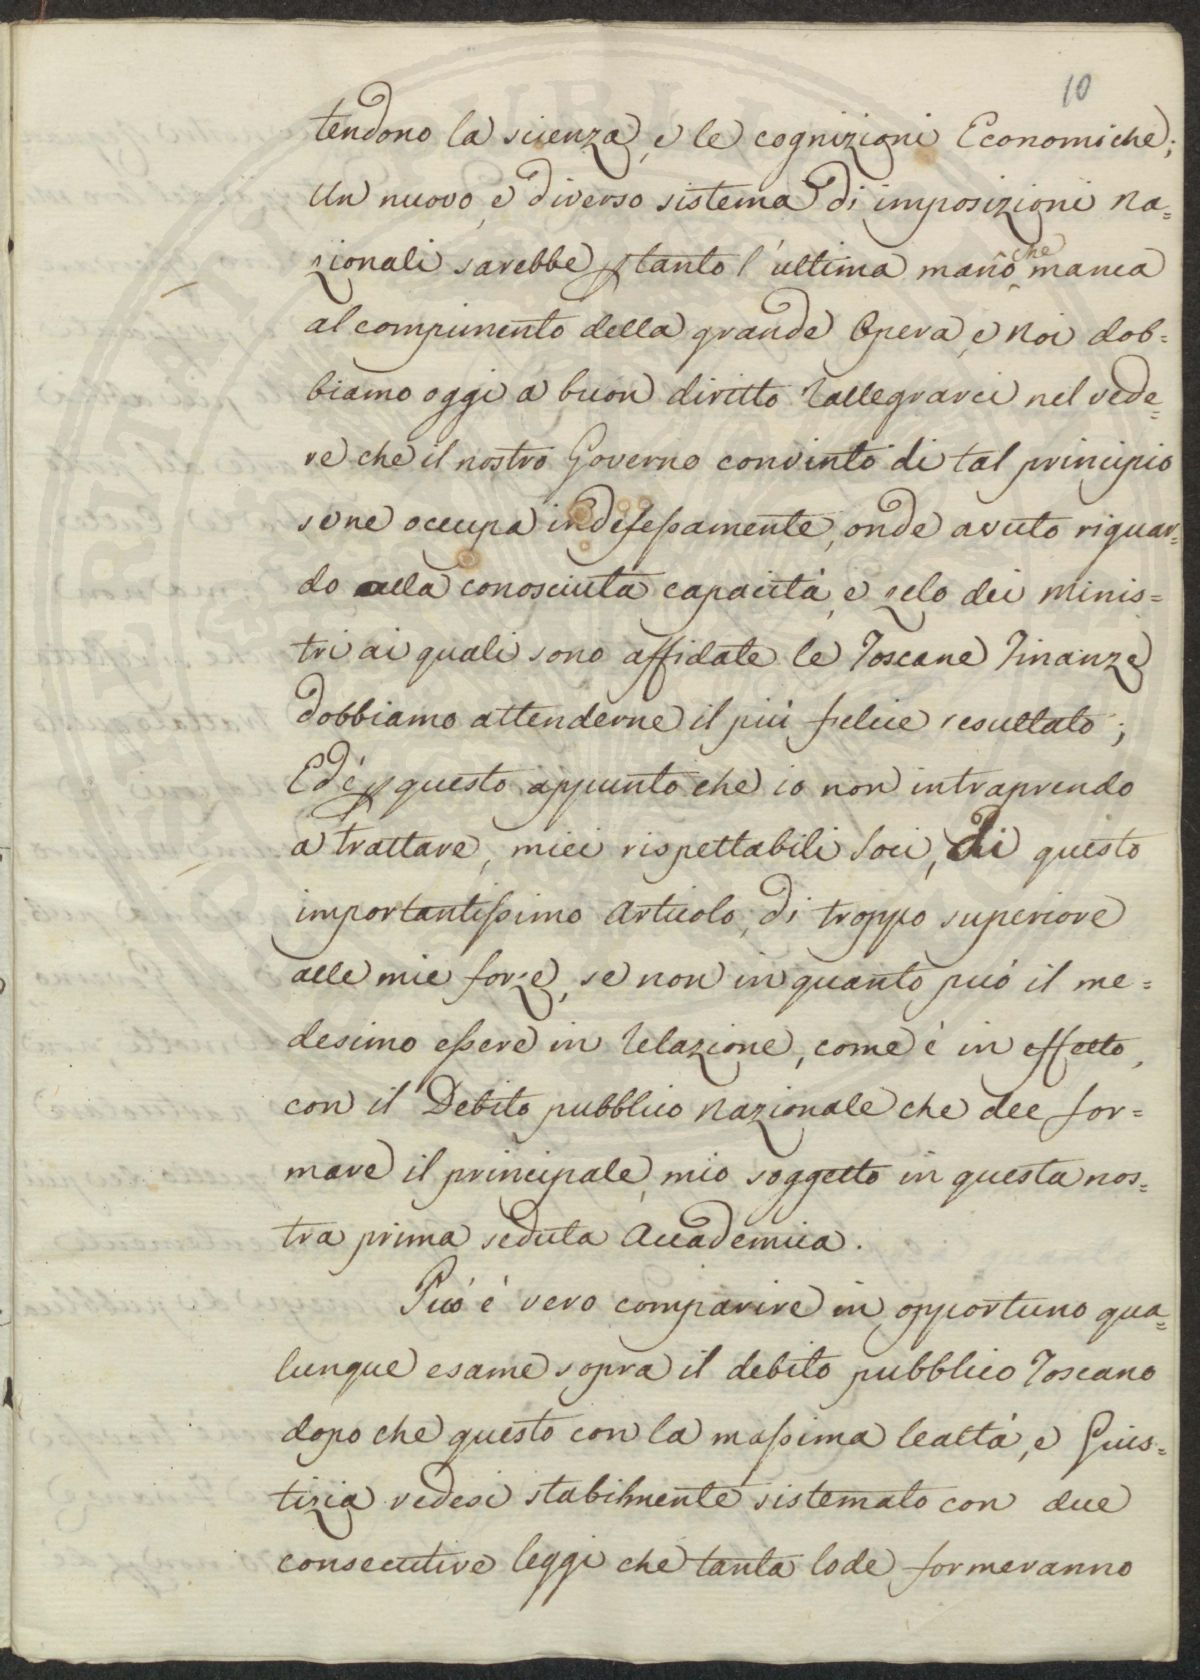 10
tendono la scienza, e le cognizioni Economiche;
Un nuovo, e diverso sistema di imposizioni Na=
zionali sarebbe ptanto l'ultima mano che manca
al compimento della grande Opera, e Noi dob=
biamo oggi a buon diritto rallegrarci nel vede=
re che il nostro Governo convinto di tal principio
se ne occupa indefessamente, onde avuto riguar=
do alla conosciuta capacità, e zelo dei Minis=
tri ai quali sono affidate le Toscane Finanze
dobbiamo attenderne il più felice resultato;
Ed è p questo appunto che io non intraprendo
a trattare, miei rispettabili Soci, di questo
importantissimo Articolo, di troppo superiore
alle mie forze, se non in quanto può il me=
desimo essere in relazione, come è in effetto,
con il Debito pubblico Nazionale che dee for=
mare il principale mio soggetto in questa nos=
tra prima seduta Accademica.
Può è vero comparire in opportuno qua=
lunque esame sopra il debito pubblico Toscano
dopo che questo con la massima lealtà, e Gius=
tizia vedesi stabilmente sistemato con due
consecutive leggi che tanta lode formeranno